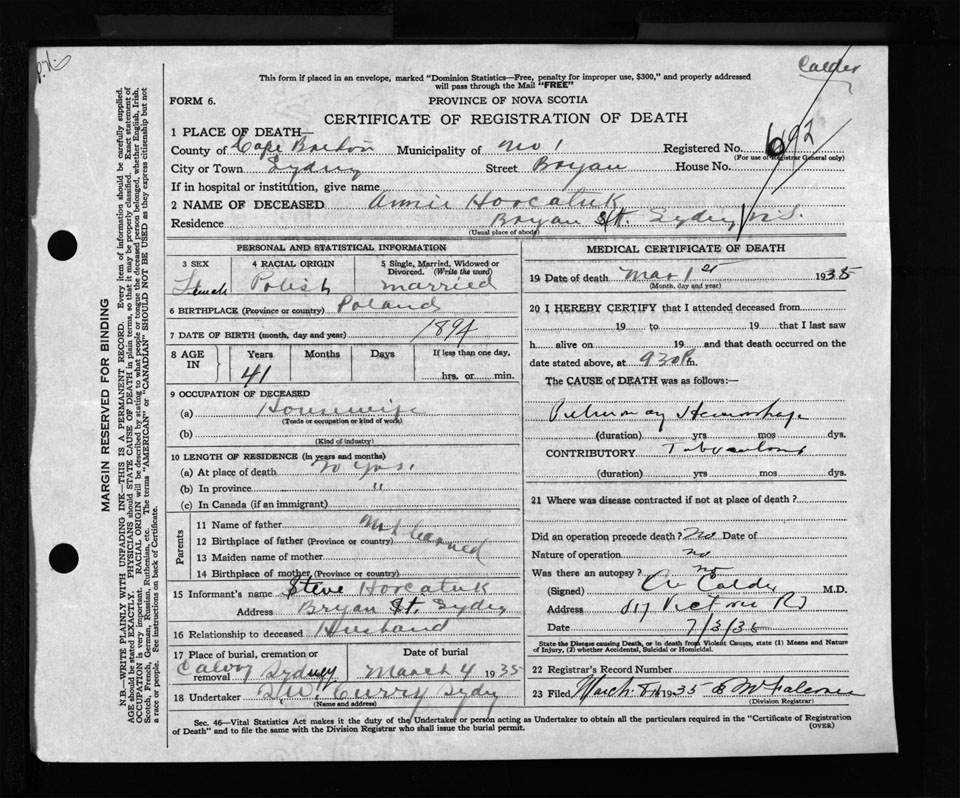 Calder
This form if placed in an envelope, marked "Dominion Statistics—Free, penalty for improper use, $300," and properly addressed
will pass through the Mail "FREE"
FORM 6.
PROVINCE OF NOVA SCOTIA
CERTIFICATE OF REGISTRATION OF DEATH
1 PLACE OF DEATH—
County of Cape Breton Municipality of No 1 Registered No. 692
(For use of Registrar General only)
City or Town Sydney Street Bryan House No.
If in hospital or institution, give name
2 NAME OF DECEASED Annie Horcatuk
Residence Bryan St. Sydney N.S.
(Usual place of abode)
PERSONAL AND STATISTICAL INFORMATION
3 SEX
Female
4 RACIAL ORIGIN
Polish
5 Single, Married, Widowed or
Divorced. (Write the word)
married
6 BIRTHPLACE (Province or country) Poland
7 DATE OF BIRTH (month, day and year) 1894
8 AGE
IN
Years
41
Months
Days
If less than one day,
hrs. or min.
9 OCCUPATION OF DECEASED
(a) Housewife
(Trade or occupation or kind of work)
(b)
(Kind of industry)
10 LENGTH OF RESIDENCE (in years and months)
(a) At place of death yrs.
(b) In province "
(c) In Canada (if an immigrant)
Parents
11 Name of father
12 Birthplace of father (Province or country) Not learned
13 Maiden name of mother
14 Birthplace of mother (Province or country)
15 Informant's name Steve Horcatuk
Address Bryan St. Sydney
16 Relationship to deceased Husband
17 Place of burial, cremation or
removal Calvry Sydney
Date of burial
March 4 1935
18 Undertaker Curry Sydney
(Name and address)
MEDICAL CERTIFICATE OF DEATH
19 Date of death Mar 1st 1935
(Month, day and year)
20 I HEREBY CERTIFY that I attended deceased from
19 to 19 that I last saw
h alive on 19 and that death occurred on the
date stated above, at 9.30 P m.
The CAUSE of DEATH was as follows:—
Pulmonary Hemorrhage
(duration) yrs mos dys.
CONTRIBUTORY Tuberculosis
(duration) yrs mos dys.
21 Where was disease contracted if not at place of death?
Did an operation precede death? No Date of
Nature of operation no
Was there an autopsy? no
(Signed) Calder M.D.
Address Victoria Rd
Date 7/3/35
State the Disease causing Death, or in death from Violent Causes, state (1) Means and Nature
of Injury, (2) whether Accidental, Suicidal or Homicidal.
22 Registrar's Record Number
23 Filed March 8th 1935
(Division Registrar)
Sec. 46—Vital Statistics Act makes it the duty of the Undertaker or person acting as Undertaker to obtain all the particulars required in the "Certificate of Registration
of Death" and to file the same with the Division Registrar who shall issue the burial permit.
(OVER)
MARGIN RESERVED FOR BINDING
N.B.—WRITE PLAINLY WITH UNFADING INK—THIS IS A PERMANENT RECORD. Every item of information should be carefully supplied.
AGE should be stated EXACTLY. PHYSICIANS should STATE CAUSE OF DEATH in plain terms, so that it may be properly classified. Exact statement of
OCCUPATION is very important. RACIAL ORIGIN will be described by stating to what people or tongue the deceased person belonged, whether English, Irish,
Scotch, French, German, Russian, Ruthenian, etc. The terms "AMERICAN" or "CANADIAN" SHOULD NOT BE USED as they express citizenship but not
a race or people. See instructions on back of Certificate.